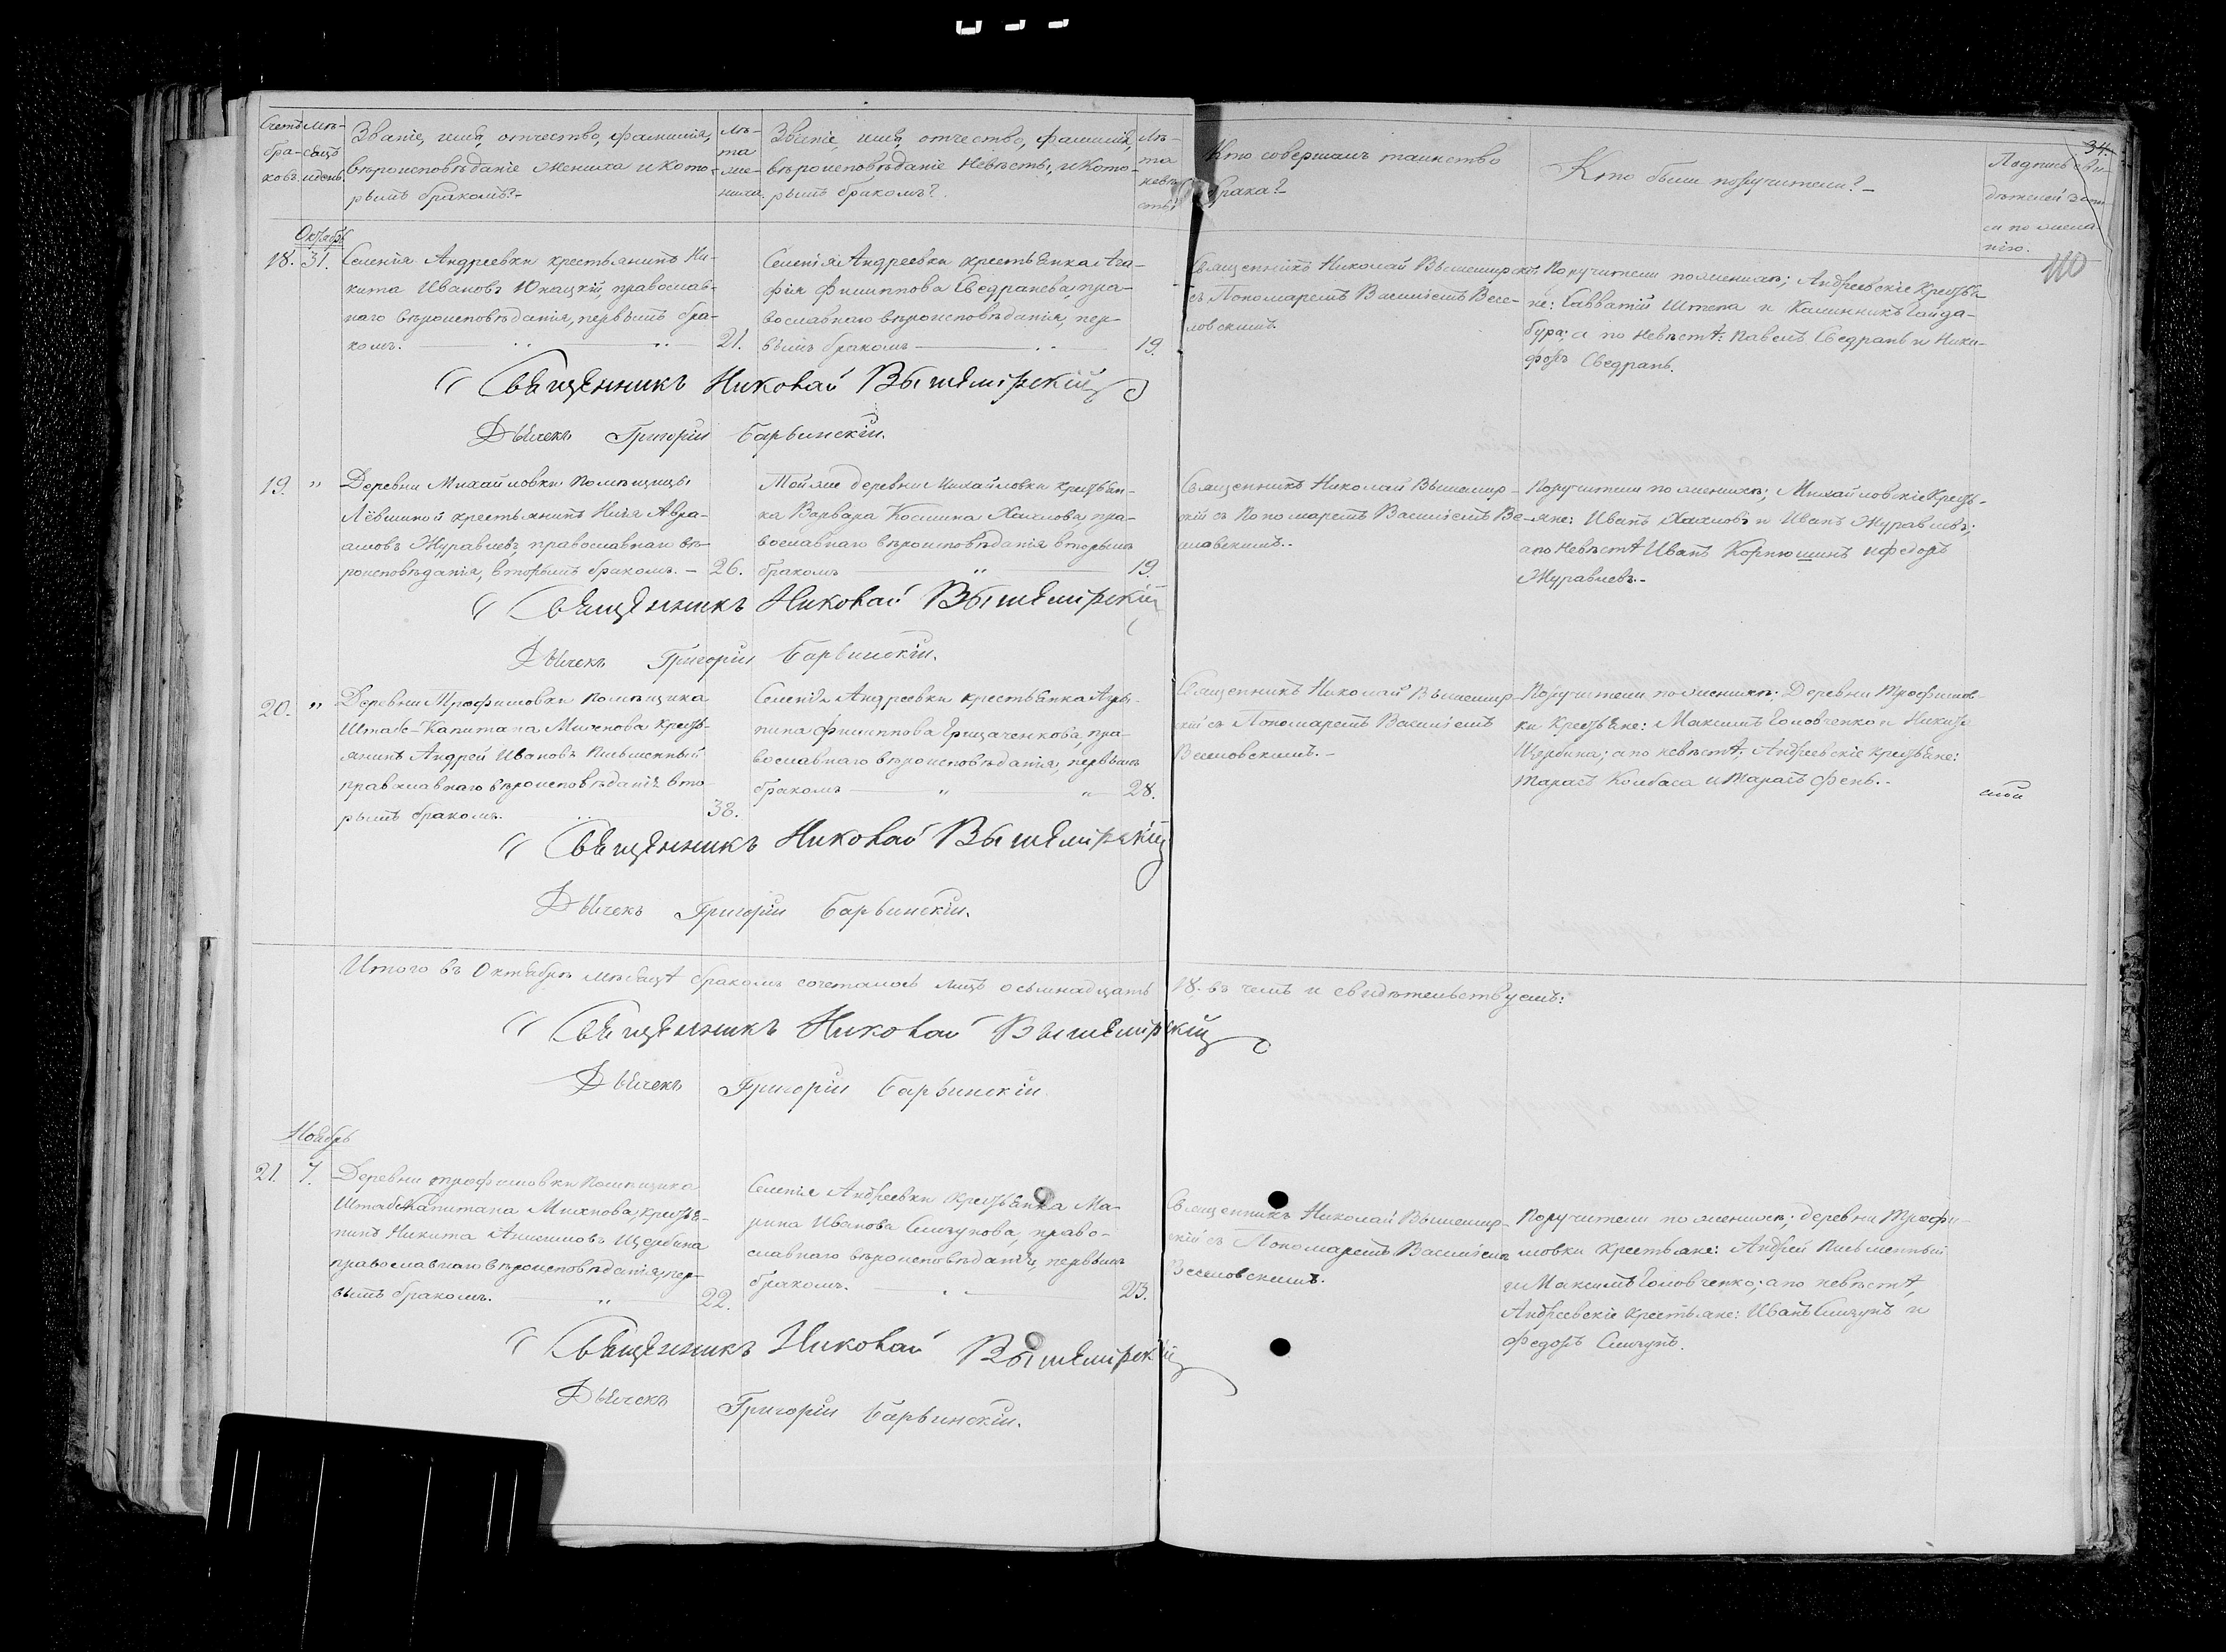 Счетъ бра-ковъ.
Мѣ-сяцъ и день.
Званіе, имя, отчество, фамилія,
вѣроисповѣданіе жениха и кото-
рымъ бракомъ?-
Лѣ-
та
же-
ниха.
Званіе, имя, отчество, фамилія,
вѣроисповѣданіе невѣсты, и кото-
рымъ бракомъ?
Лѣ-
та
невѣ-
сты
Кто совершалъ таинство
брака?-
Кто были поручители?-
Подпись сви-
дѣтелей запи-
си по жела-
нію.
34.
110
Октябрь
18. 31.
Селенія Андреевки крестьянинъ Ни-
кита Ивановъ Юнацкій, православ-
наго вѣроисповѣданія, первымъ бра-
комъ.
21.
Селенія Андреевки крестьянка Ага-
фія Филиппова Сведранева, пра-
вославнаго вѣроисповѣданія, пер-
вымъ бракомъ
19.
Священникъ Николай Вышемірскій
съ Пономаремъ Василіемъ Весе-
ловскимъ.
Поручители по женихѣ; Андреевскіе крестья-
не: Савватій Штепа и Калинникъ Гайда-
бура; а по невѣстѣ: Павелъ Сведранъ и Ники-
форъ Сведранъ.
Священникъ Николай Вышемірскій
Дьячекъ Григорій Барвинскій.
19. "
Деревни Михайловки Помѣщицы
Лёвшиной крестьянинъ Илія Авра-
амовъ Журавлевъ, православнаго вѣ-
роисповѣданія, вторымъ бракомъ. -
26.
Той же деревни Михайловки крестьян-
ка Варвара Космина Хахлова, пра-
вославнаго вѣроисповѣданія вторымъ
бракомъ
19.
Священникъ Николай Вышемір-
скій съ Пономаремъ Василіемъ Ве-
словскимъ.-
Поручители по женихѣ; Михайловскіе Кресть-
яне: Иванъ Хахловъ и Иванъ Журавлевъ;
а по невѣстѣ Иванъ Корнюшинъ и Федоръ
Журавлевъ.-
Священникъ Николай Вышемірскій
Дьячекъ Григорій Барвинскій.
20. "
Деревни Трофимовки Помѣщика
Штабс-Капитана Михнова кресть-
янинъ Андрей Ивановъ Письменный
православнаго вѣроисповѣданія вто
рымъ бракомъ.
38.
Селенія Андреевки крестьянка Агри-
пина Филиппова Грицаченкова, пра-
вославнаго вѣроисповѣданія, первымъ
бракомъ
28.
Священникъ Николай Вышемір-
скій съ Пономаремъ Василіемъ
Веселовскимъ.-
Поручители по женихѣ: Деревни Трофимов-
ки Крестьяне: Максимъ Головченко и Никита
Щербина; а по невѣстѣ; Андреевскіе крестьяне:
Тарасъ Колбаса и Тарасъ Фень.-
Священникъ Николай Вышемірскій
Дьячекъ Григорій Барвинскій.
Итого въ Октябрѣ мѣсяцѣ бракомъ сочеталось лицъ осьмнадцать 18. въ чемъ и свидѣтельствуемъ:
Священникъ Николай Вышемірскій
Дьячекъ Григорій Барвинскій
Ноябрь
21. 7.
Деревни Трофимовки Помѣщика
Штабс-Капитана Михнова, крестья-
нинъ Никита Анисимовъ Щербина
православнаго вѣроисповѣданія, пер-
вымъ бракомъ.
22.
Селенія Андреевки крестьянка Ма-
рина Иванова Смагунова, право-
славнаго вѣроисповѣданія, первымъ
бракомъ.
23.
Священникъ Николай Вышемір-
скій съ Пономаремъ Василіемъ
Веселовскимъ.
Поручители по женихѣ; деревни Трофи-
мовки крестьяне: Андрей Письменный
и Максимъ Головченко; а по невѣстѣ,
Андреевскіе крестьяне: Иванъ Смагунъ и
Федоръ Смагунъ.
Священникъ Николай Вышемірскій
Дьячекъ Григорій Барвинскій.